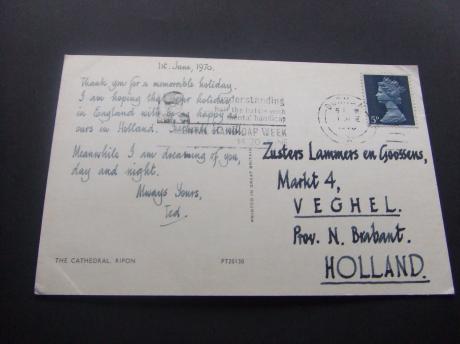 1st. June, 1970.
Thank you for a memorable holiday.
I am hoping that your holiday
in England will be as happy as
ours in Holland.
Meanwhile I am dreaming of you,
day and night.
Always Yours,
Ted.
understanding
help the
mental handicap
HANDICAP WEEK
5D
PRINTED IN GREAT BRITAIN
Zusters Lammers en Goossens,
Markt 4,
VEGHEL.
Prov. N. Brabant.
HOLLAND.
THE CATHEDRAL, RIPON
PT20130